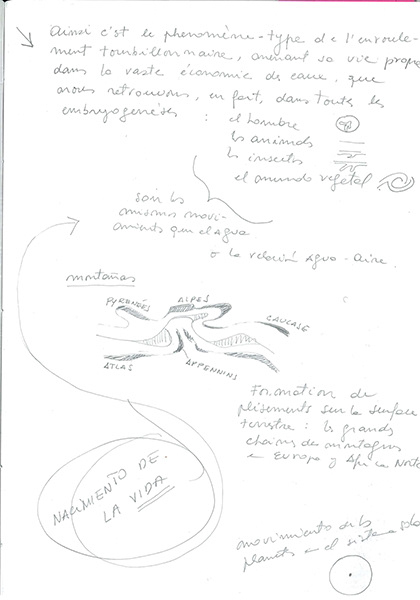 Ainsi c'est le phenomène-type de l'enroule-
ment tourbillonnaire, menant sa vie propre
dans la vaste économie des eaux, que
nous retrouvons, en fait, dans toutes les
embryogenéses : el hombre
los animales
los insectos
el mundo vegetal
son los
mismos movi-
mientos que el agua
o la relación agua-aire.
montañas
PYRENÉES ALPES CAUCASE
ATLAS APPENNINS
Formation de
plisements sur la surface
terrestre : les grands
chaines de montagnes
en Europa y Africa Norte
NACIMIENTO DE
LA VIDA
movimiento de los
planets en el sistema solar